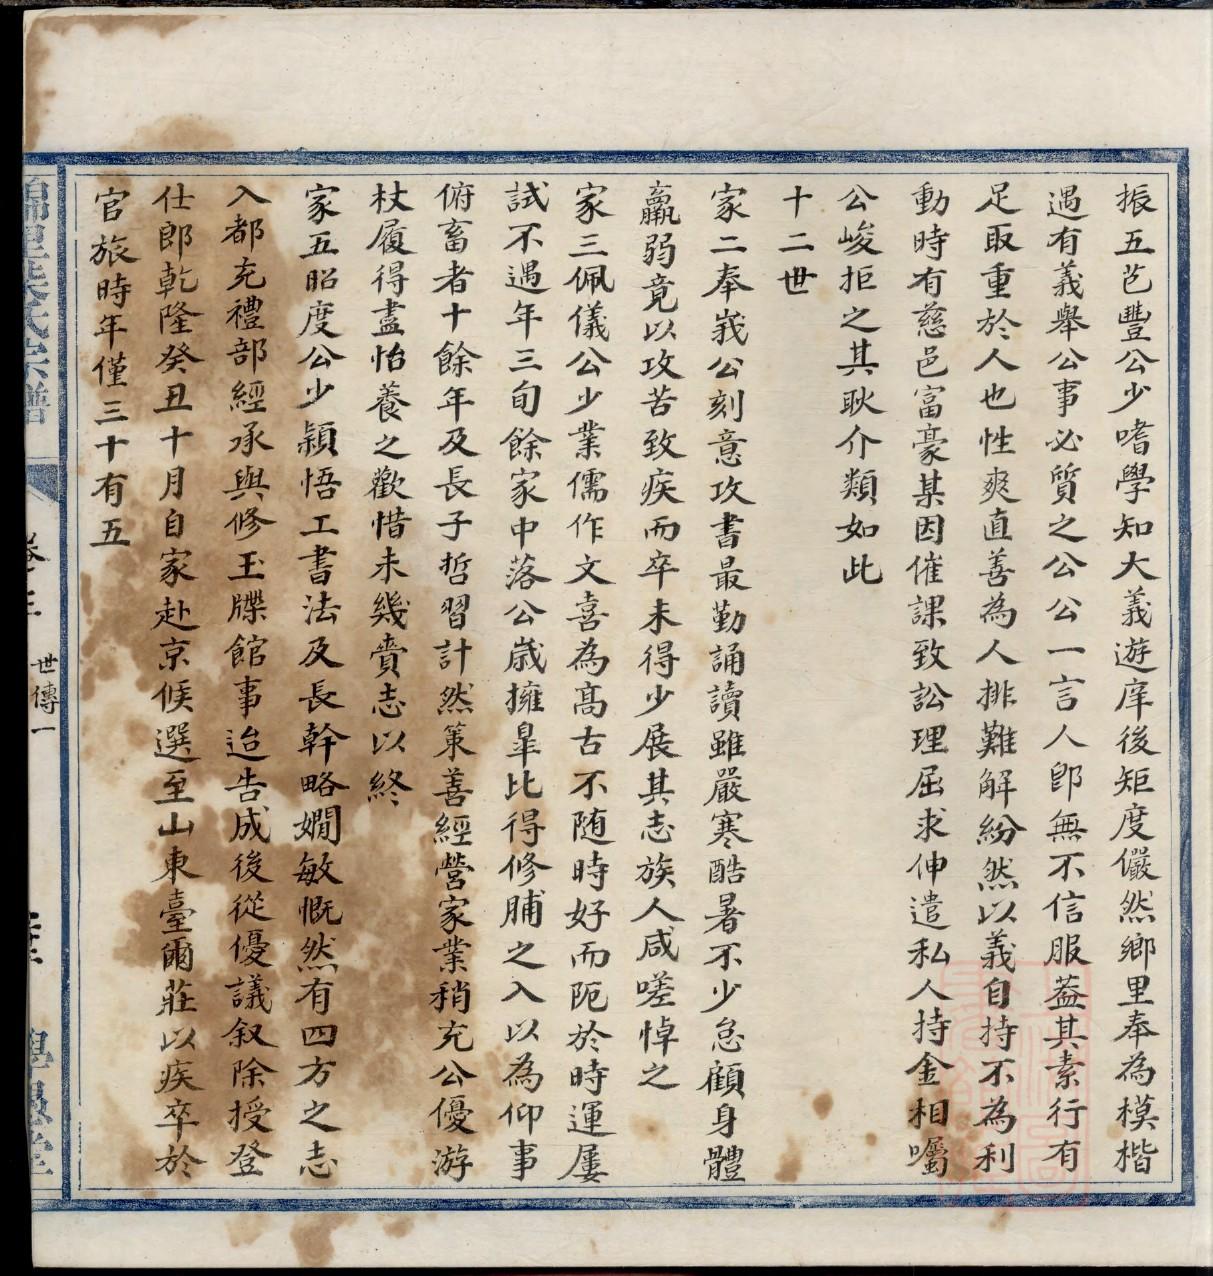 振五芑豐公少嗜學知大義遊庠後矩度儼然鄉里奉為模楷
遇有義舉公事必質之公公一言人卽無不信服葢其素行有
足取重於人也性爽直善為人排難解紛然以義自持不為利
動時有慈邑富豪某因催課致訟理屈求伸遣私人持金相囑
公峻拒之其耿介類如此
十二世
家二奉峩公刻意攻書最勤誦讀雖嚴寒酷暑不少怠顧身體
羸弱竟以攻苦致疾而卒未得少展其志族人咸嗟悼之
家三佩儀公少業儒作文喜為高古不随時好而阨於時運屢
試不遇年三旬餘家中落公歲擁臯比得修脯之入以為仰事
俯畜者十餘年及長子哲習計然策善經營家業稍充公優游
杖履得盡怡養之歡惜未幾賷志以終
家五昭度公少穎悟工書法及長幹略嫺敏慨然有四方之志
入都充禮部經承與修玉牒館事迨告成後從優議叙除授登
仕郎乾隆癸丑十月自家赴京候選至山東臺爾莊以疾卒於
官旅時年僅三十有五
氏宗譜
世傳一